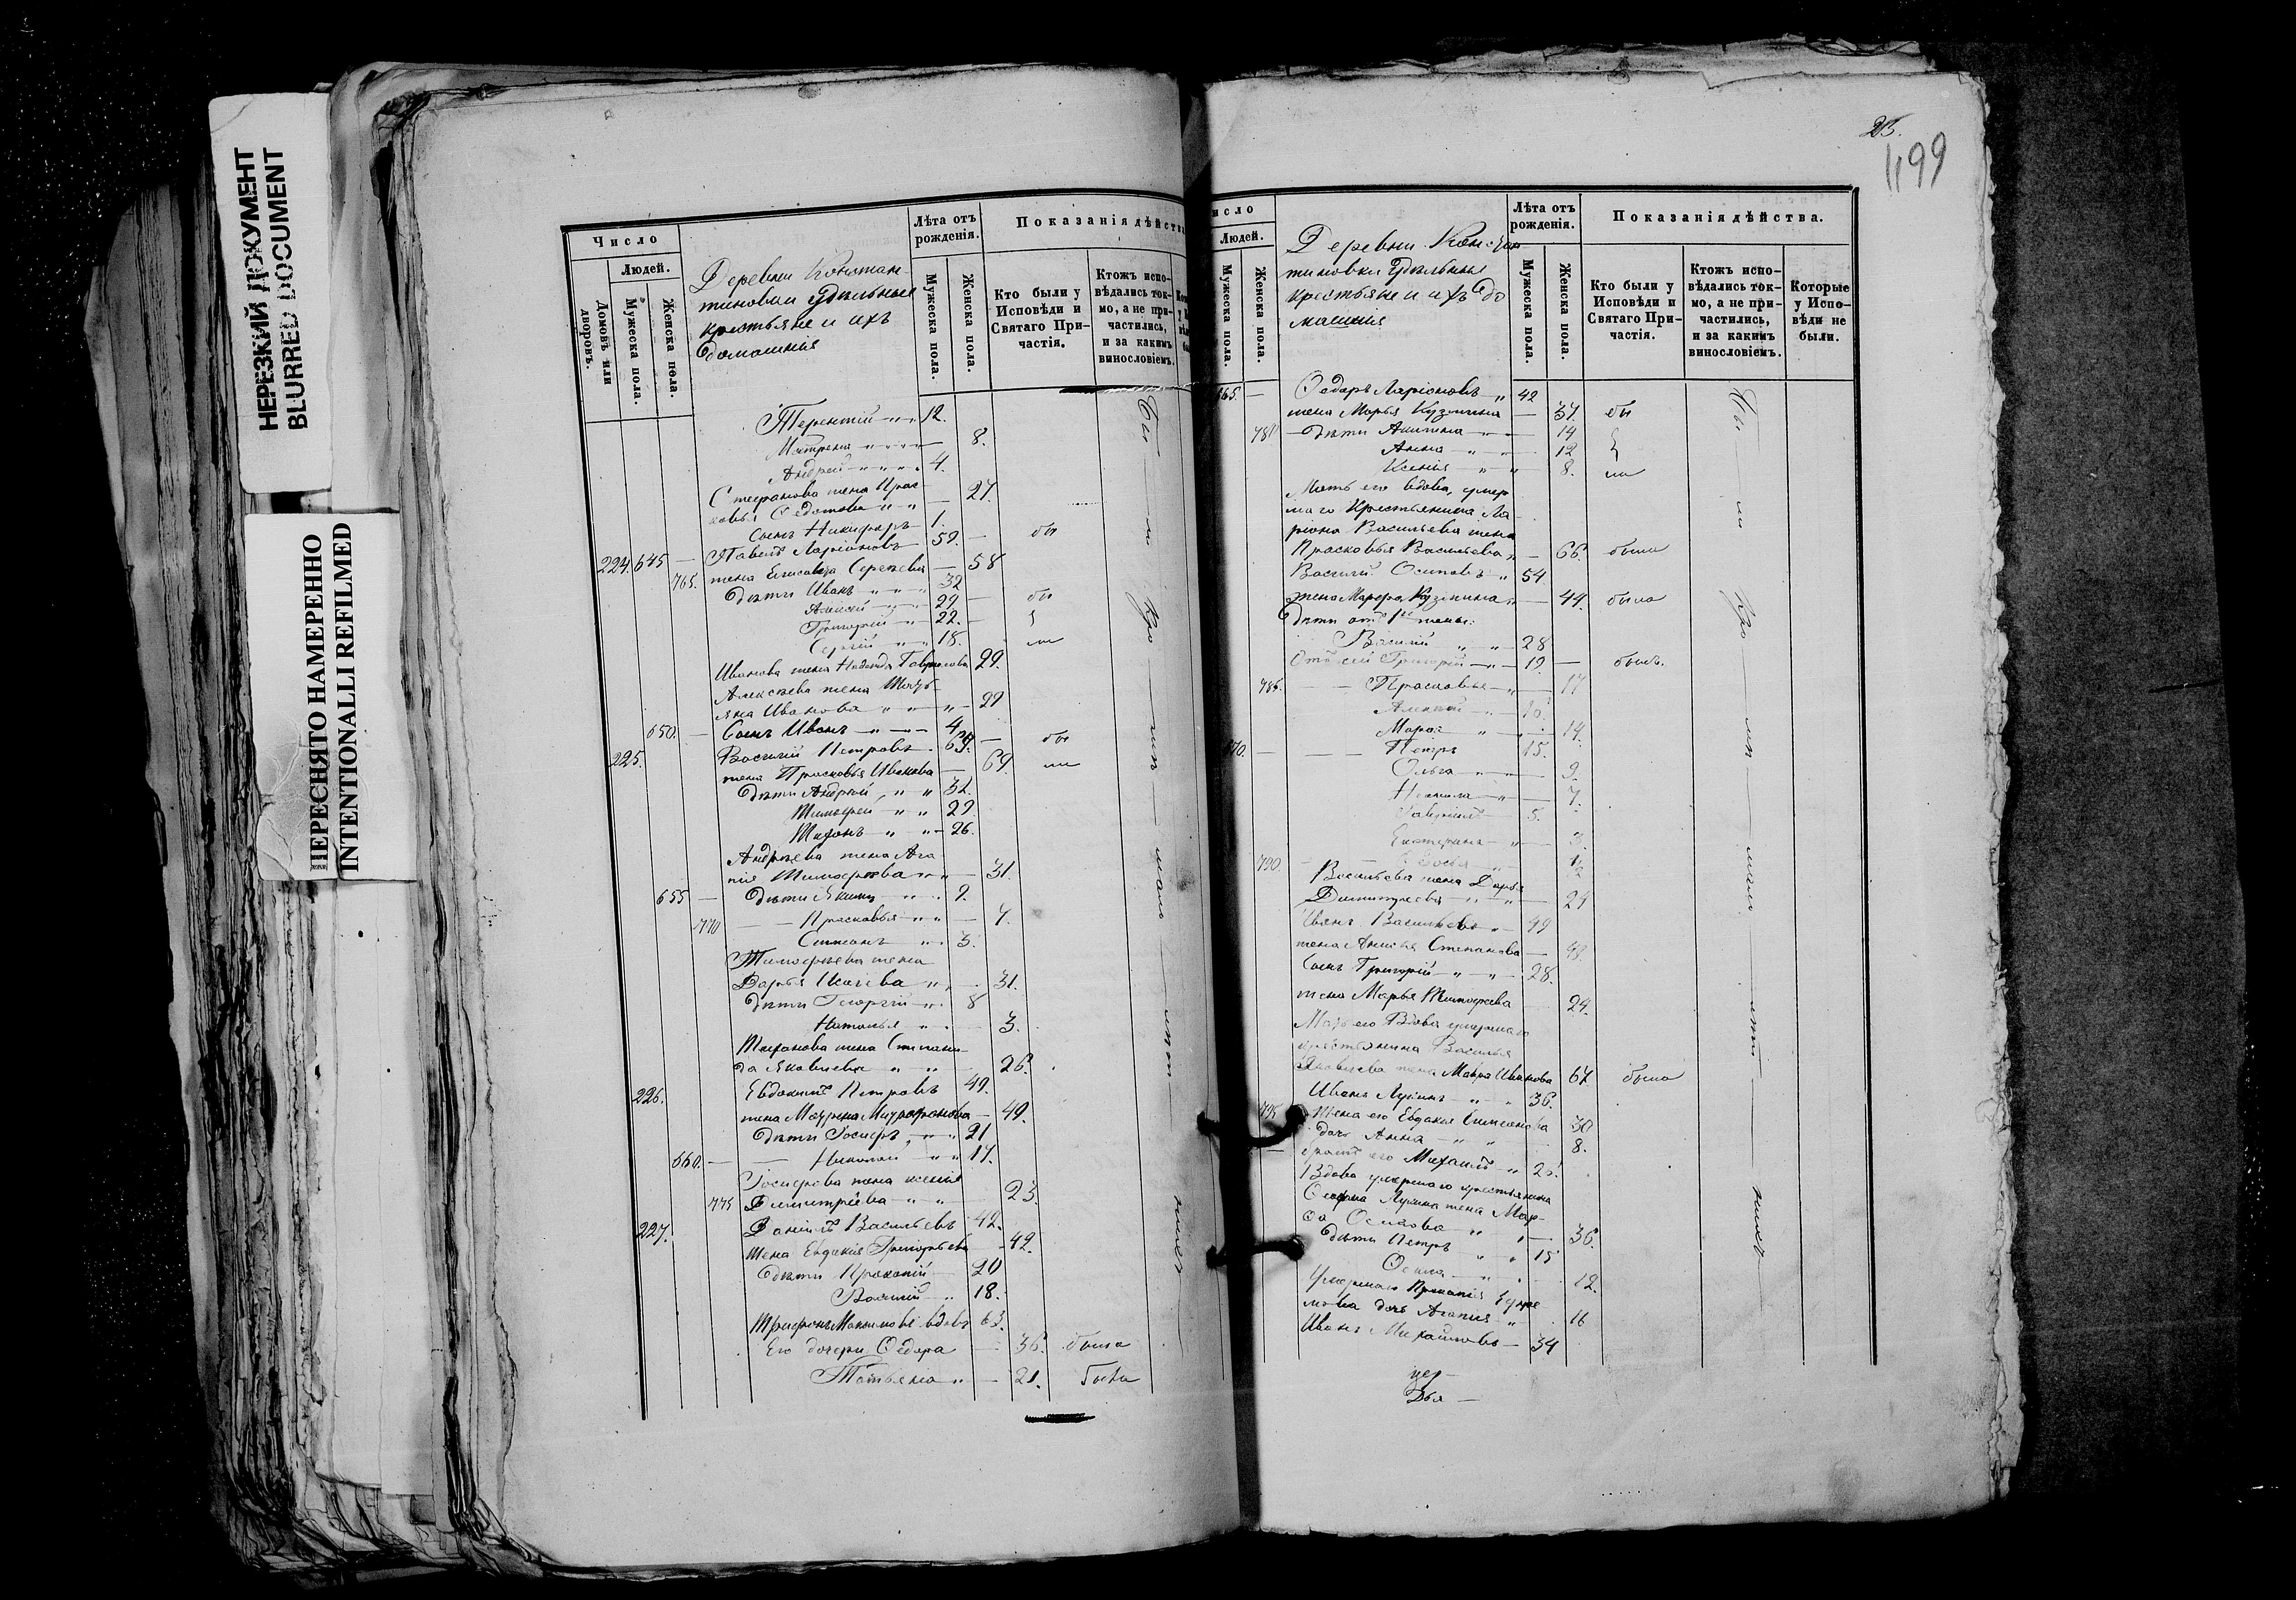 НЕРЕЗКИЙ ДОКУМЕНТ
BLURRED DOCUMENT
ПЕРЕСНЯТО НАМЕРЕННО
INTENTIONALLI REFILMED
Число
Людей.
Домовъ или дворовъ.
Мужеска пола.
Женска пола.
Деревни Констан-
тиновки удѣльные
крестьяне и ихъ
домашнія
Лѣта отъ рожденія.
Мужеска пола.
Женска пола.
Показанія дѣйства
Кто были у Исповѣди и Святаго При-частія.
Ктожъ испо-вѣдались ток-мо, а не при-частились, и за какимъ винословіемъ.
Терентій 12.
Матрена 8.
Андрей 4.
Стефанова жена Прас-
ковья Федотова 27.
Сынъ Никифоръ 1.
224. 645 Павелъ Ларіоновъ 59. бы
765. жена Елисавета Сергѣева 58
дѣти Иванъ 32
Алексѣй 29 бы
Григорій 22.
Сергій 18. ли
Иванова жена Надежда Гаврилова 29.
Алексѣева жена Тать-
яна Иванова 29
650. Сынъ Иванъ 4
225. Василій Петровъ 69. бы
жена Прасковья Иванова 69. ли
дѣти Андрей 32.
Тимофей 29
Тихонъ 26.
Андреева жена Ага-
пія Тимофеева 31.
655 дѣти Якимъ 9.
770 Прасковья 7.
Симеонъ 3.
Тимофѣева жена
Дарья Исаева 31.
дѣти Георгій 8
Наталья 3.
Тихонова жена Степани-
да Яковлева 26.
226. Евдокимъ Петровъ 49.
жена Маура Митрофанова 49.
дѣти Іосифъ 21
660. Николай 17.
Іосифова жена Ксенія
775 Димитріева 23.
227. Даніилъ Васильевъ 42.
жена Евдокія Григорьева 42.
дѣти Прокопій 20
Василій 18.
Трифонъ Максимовъ вдовъ 63.
Его дочери Ѳедора 36. была
Татьяна 21. была
23.
1199
Число
Людей.
Мужеска пола.
Женска пола.
Деревни Констан-
тиновки удѣльные
крестьяне и ихъ до
машнія
Лѣта отъ рожденія.
Мужеска пола.
Женска пола.
Показанія дѣйства.
Кто были у Исповѣди и Святаго При-частія.
Ктожъ испо-вѣдались ток-мо, а не при-частились, и за какимъ винословіемъ.
Которые у Испо-вѣди не были.
665. Ѳедоръ Ларіоновъ 42
жена Марья Кузмина 37. бы
780 дѣти Акилина 14
Анна 12
Ксенія 8. ли
Мать его вдова, умер
шаго Крестьянина Ла-
ріона Васильева жена
Прасковья Васильева 66. была
Василій Осиповъ 54
жена Марфа Кузмина 44. была
дѣти отъ 1й жены:
Василій 28
Отъ сей Григорій 19 былъ.
785. Прасковья 17
Алексѣй 16.
Марфа 14.
670. Петръ 15.
Ольга 9.
7.
Гавріилъ 5.
Екатерина 3.
790. ½
Васильева жена Дарья
Димитреева 29
Иванъ Васильевъ 49
жена Анисья Степанова 48.
Сынъ Григорій 28.
жена Марья Тимофеева 24.
Мать его Вдова умершаго
крестьянина Василья
Яковлева жена Мавра Иванова 67 была
Иванъ Лукинъ 36.
795 Жена его Евдокія Симеонова 30
дочь Анна 8.
братъ его Михаилъ 25.
Вдова умершаго крестьянина
Лукина жена Мар-
Осипова 36.
дѣти Петръ 15
12.
Умершаго Прокопія Ефре
мова дочь Агапія 16
Иванъ Михайловъ 34
цер-
Дья-